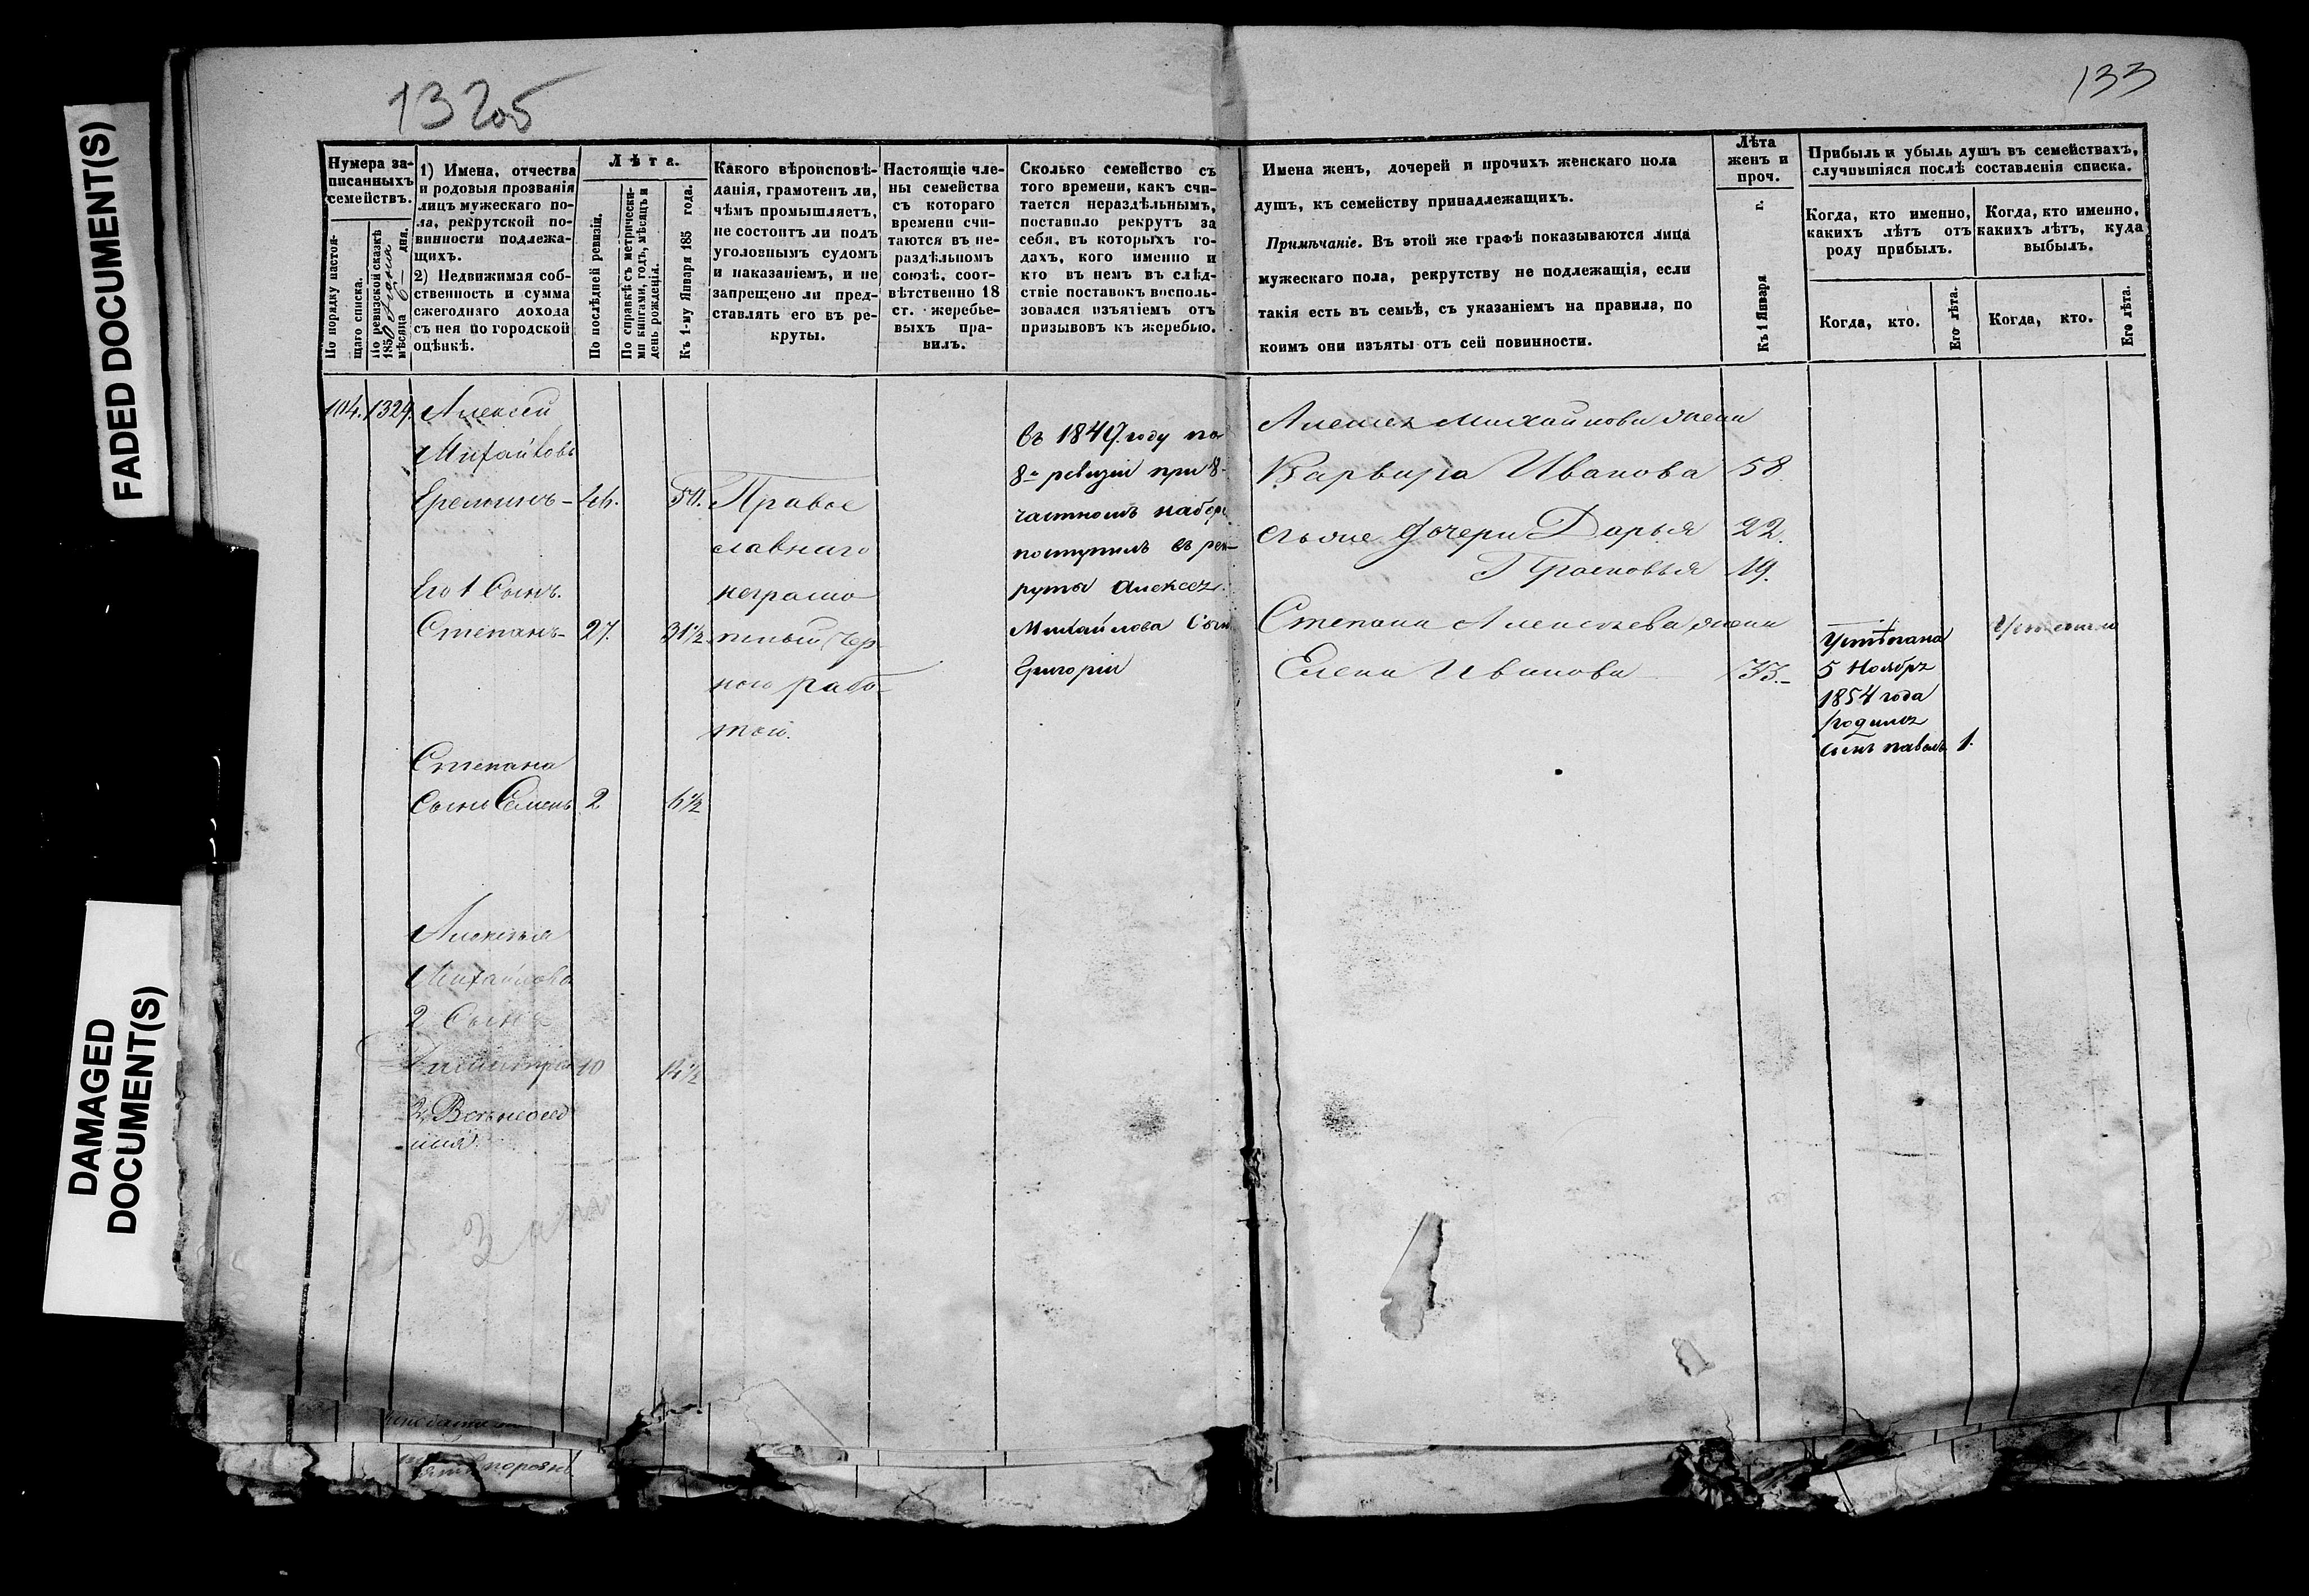 FADED DOCUMENT(S)
DAMAGED
DOCUMENT(S)
132об
133
Нумера за-
писанныхъ
семействъ.
По порядку настоя-
щаго списка.
По ревизской сказкѣ
1850 Іюня
мѣсяца 6 дня.
1) Имена, отчества
и родовыя прозванія
лицъ мужескаго по-
ла, рекрутской по-
винности подлежа-
щихъ.
2) Недвижимая соб-
ственность и сумма
ежегоднаго дохода
съ нея по городской
оцѣнкѣ.
Лѣта.
По послѣдней ревизіи.
По справкѣ съ метрически-
ми книгами, годъ, мѣсяцъ и
день рожденія.
Къ 1-му Января 185 года.
Какого вѣроисповѣ-
данія, грамотенъ ли,
чѣмъ промышляетъ,
не состоитъ ли подъ
уголовнымъ судомъ
и наказаніемъ, и не
запрещено ли пред-
ставлять его въ ре-
круты.
Настоящіе чле-
ны семейства
съ котораго
времени счи-
таются въ не-
раздѣльномъ
союзѣ, соот-
вѣтственно 18
ст. жеребье-
выхъ пра-
вилъ.
Сколько семейство съ
того времени, какъ счи-
тается нераздѣльнымъ,
поставило рекрутъ за
себя, въ которыхъ го-
дахъ, кого именно и
кто въ немъ въ слѣд-
ствіе поставокъ восполь-
зовался изъятіемъ отъ
призывовъ къ жеребью.
Имена женъ, дочерей и прочихъ женскаго пола
душъ, къ семейству принадлежащихъ.
Примѣчаніе. Въ этой же графѣ показываются лица
мужескаго пола, рекрутству не подлежащія, если
такія есть въ семьѣ, съ указаніемъ на правила, по
коимъ они изъяты отъ сей повинности.
Лѣта
женъ и
проч.
Къ 1 Января г.
Прибыль и убыль душъ въ семействахъ,
случившіяся послѣ составленія списка.
Когда, кто именно,
какихъ лѣтъ отъ
роду прибылъ.
Когда, кто именно,
какихъ лѣтъ, куда
выбылъ.
Когда, кто.
Его лѣта.
Когда, кто.
Его лѣта.
104. 1329. Алексей
Михайловъ
Еремин 46. 50. Право
славнаго
Его 1 Сынъ. неграмо
Степанъ 27. 31½ тный Чер
ного рабо
той.
Степана
Сынъ Семенъ 2 6½
Алексея
Михайлова
2 Сынъ
Дмитрий 10 14½
въ 1849 году по
8й ревизіи при 8
частномъ наборе
поступилъ въ рек-
руты Алексея
Михайлова Сын
Григорій
Алексея Михайлова жена
Варвара Ивановa 58.
Ихъ же дочери Дарья 22.
Прасковья 19.
Степана Алексеева жена
Елена Иванова 33.
У Степана
5 Ноября
1854 года
родился
сынъ павелъ 1.